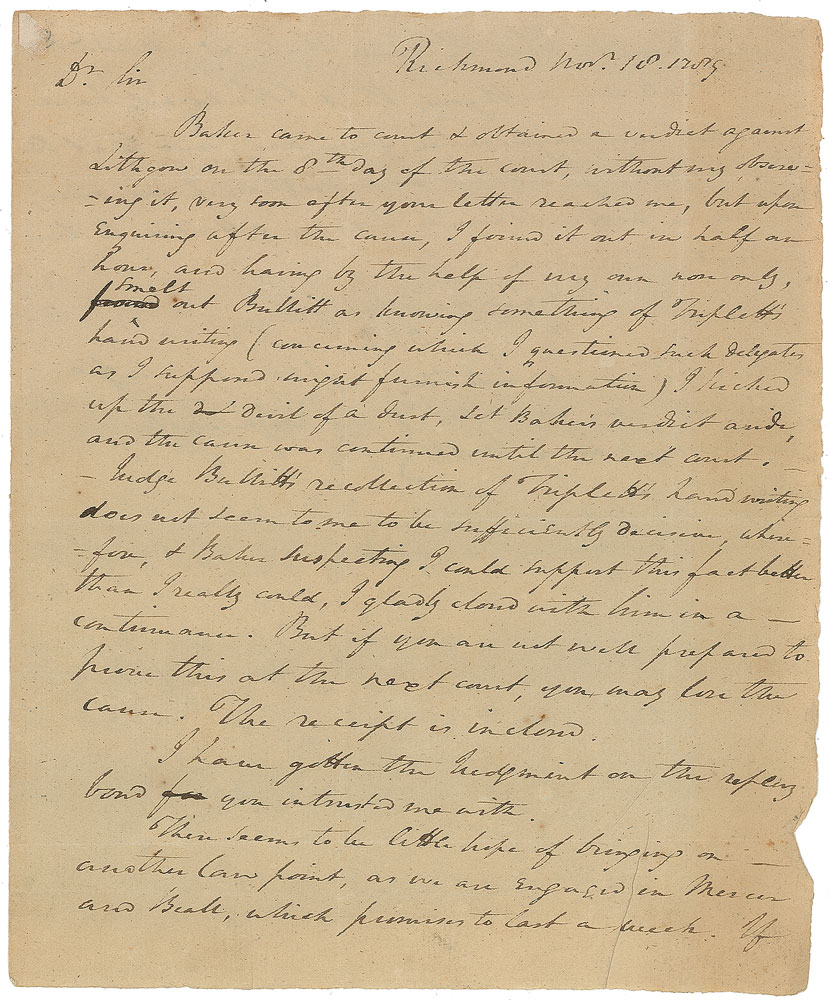 Richmond Novr. 18. 1789
Dr. Sir
Baker came to court & obtained a verdict against
Lithgow on the 8th day of the court, without my observ=
=ing it, very soon after your letter reached me, but upon
Enquiring after the cause, I found it out in half an
hour, and having by the help of my own nose only,
smelt
found out Bullitt as knowing something of Triplett's
hand writing (concerning which I questioned such delegates
as I supposed might furnish information) I kicked
up the devil of a dust, set Baker's verdict aside,
and the cause was continued until the next court. _
_ Judge Bullitt's recollection of Triplett's hand writing
does not seem to me to be sufficiently decisive, where=
=fore, & Baker suspecting I could support this fact better
than I really could, I gladly closed with him in a _
continuance. But if you are not well prepared to
prove this at the next court, you may lose the
cause. The receipt is inclosed.
I have gotten the Judgment on the replevy
bond for you intrusted me with.
There seems to be little hope of bringing on _
another law point, as we are Engaged in Mercer
and Beall, which promises to last a week. If